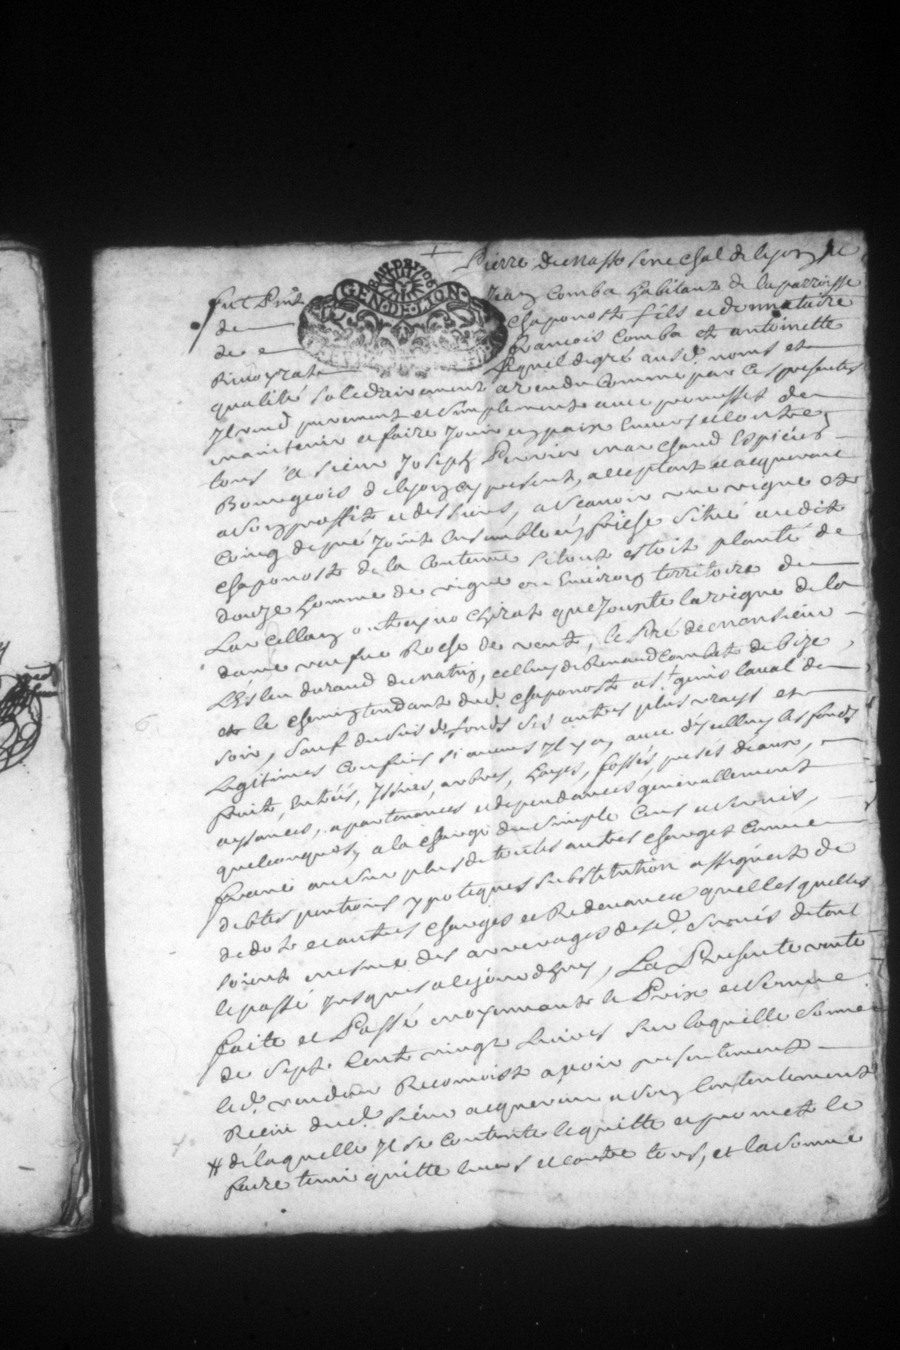 Pierre de Masso senechal de Lyon
GEN·DE·LION
Jean Comba habitant de la parroisse
de
Chaponost fils et donnataire
de
francois Comba et antoinette
Lequel de gré aus d. noms et
qualité solidairement a vendu Comme par Ces presentes
Il vend purement et simplement avec promesse de
maintenir et faire Jouir en paix envers et contre
tous a sieur Joseph Perrier marchand Espicier
Bourgeois de lyon Cy present, acceptant et acquerant
a son proffit et des siens, a scavoir une vigne et
Cinq de pré Joint Ensemble en friche Situé audit
Chaponost de la Contenue si tout estoit planté de
douze homme de vigne ou Environ territoire de
que Jouxte la vigne de la
dame veufve Roche de vent, le Pré de monsieur
durand de matin, celluy de Renaud Combet de bize
et le chemin tendant dud. Chaponost a laval de
soir, sauf du suis de fonds ses autres plus vrays et
Legitimes Confins si aucuns Il y a, avec d'Iceluy les fonds
fruit, Entrées, Issües, arbres, hayes, fossés, prises d'eaux,
aysances, apartenances et dependances generallement
quelconques, a la charge du simple Cens et servis,
franc au sur plus de toutes autres charges Comme
debtes pentions ypoteques substitution assignat de
de dote et autres charges et Redevances quelles quelles
soient mesme des arrerages desd. servis de tout
le passé Jusques a ce jourdhuy, La Presente vente
faite et Passé moyennant le Prix et somme
de sept Cent vingt Livres sur laquelle somme
led. vendeur Reconnoist avoir presentement
Receu dud. sieur acquereur a son Contentement
# de laquelle Il se contente le quitte et promet le
faire tenir quitte envers et contre tous, et la somme